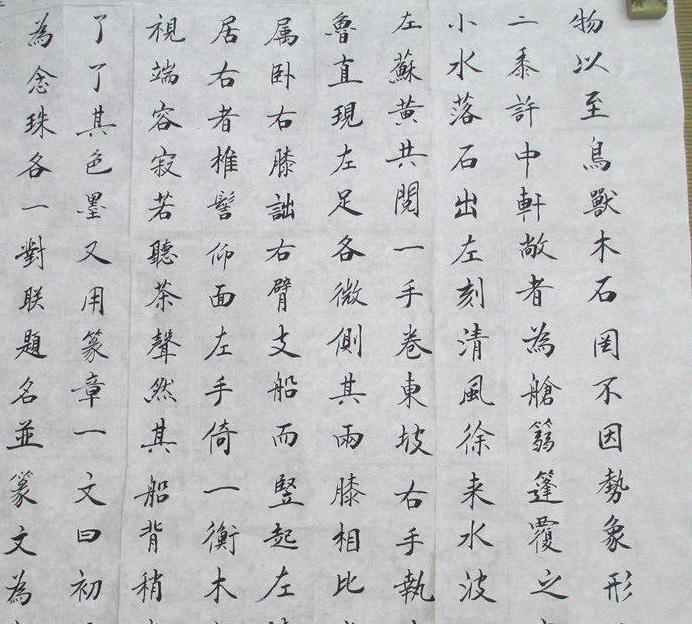 物以至鳥獸木石罔不因勢象形
二黍許中軒敞者為艙篛篷覆之
小水落石出左刻清風徐来水波
左蘇黄共閲一手卷東坡右手執
魯直現左足各微側其兩膝相比
属卧右膝詘右臂支船而竪起左
居右者椎髻仰面左手倚一衡木
視端容寂若聽茶聲然其船背稍
了了其色墨又用篆章一文曰初
為念珠各一對联題名並篆文為